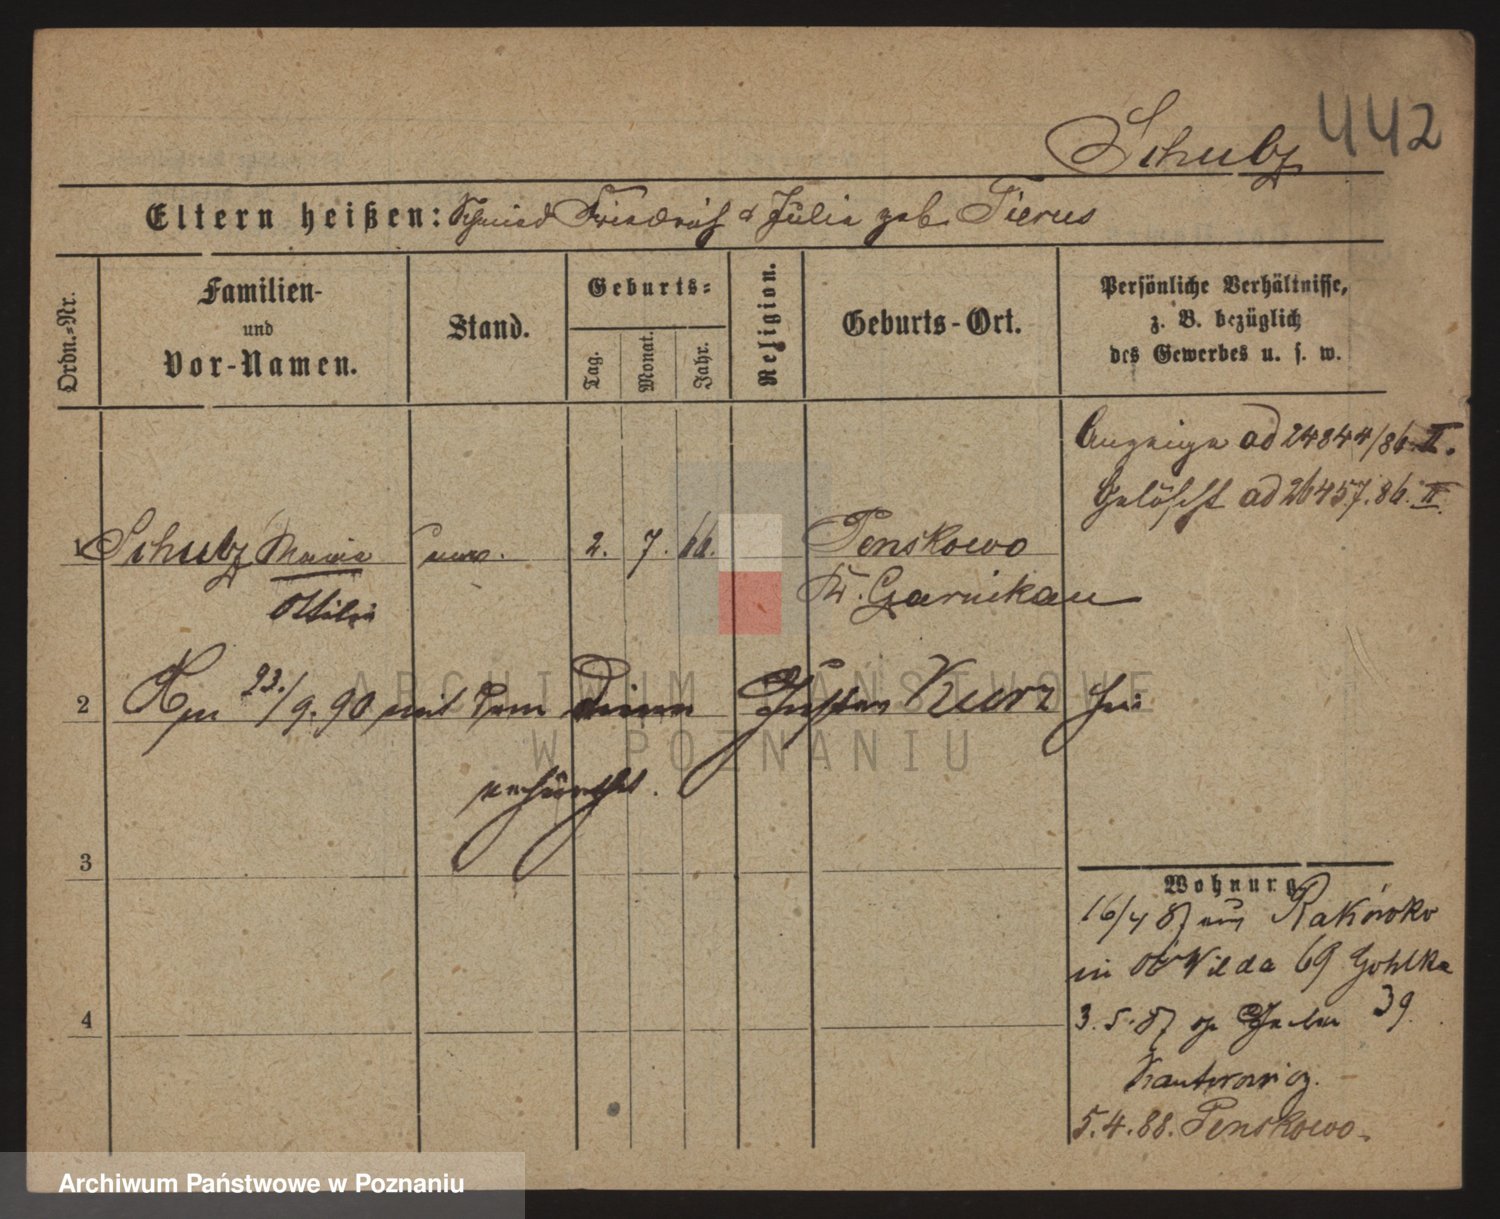 442
Schulz
Eltern heißen: Schmied Friedrich & Julie geb. Tierus
Ordn.-Nr.
Familien-
und
Vor-Namen.
Stand.
Geburts-
Tag. Monat. Jahr.
Religion.
Geburts-Ort.
Persönliche Verhältnisse,
z. B. bezüglich
des Gewerbes u. s. w.
Anzeige ad 24844/86. II.
Gelöscht ad 26457. 86. II.
1 Schulz Marie 2. 7. 66. Penskowo
Ottilie Kr. Czarnikau
2 23./9. 90 mit dem Gustav Kurz hier
3
Wohnung
16/4 87 aus Rakowko
in Ob Wilda 69 Gohlke
3. 5. 87 39
Kantorowicz.
4
5. 4. 88. Penskowo.
ARCHIWUM PAŃSTWOWE
W POZNANIU
Archiwum Państwowe w Poznaniu